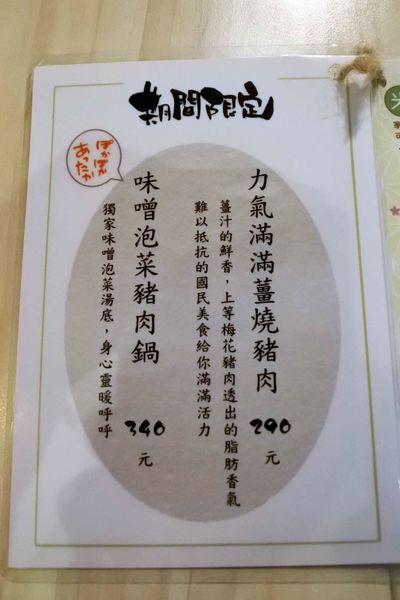 期間限定
力氣滿滿薑燒豬肉
290
元
薑汁的鮮香，上等梅花豬肉透出的脂肪香氣
難以抵抗的國民美食給你滿滿活力
ぽかぽか
あったか
味噌泡菜豬肉鍋
340
元
獨家味噌泡菜湯底，身心靈暖呼呼